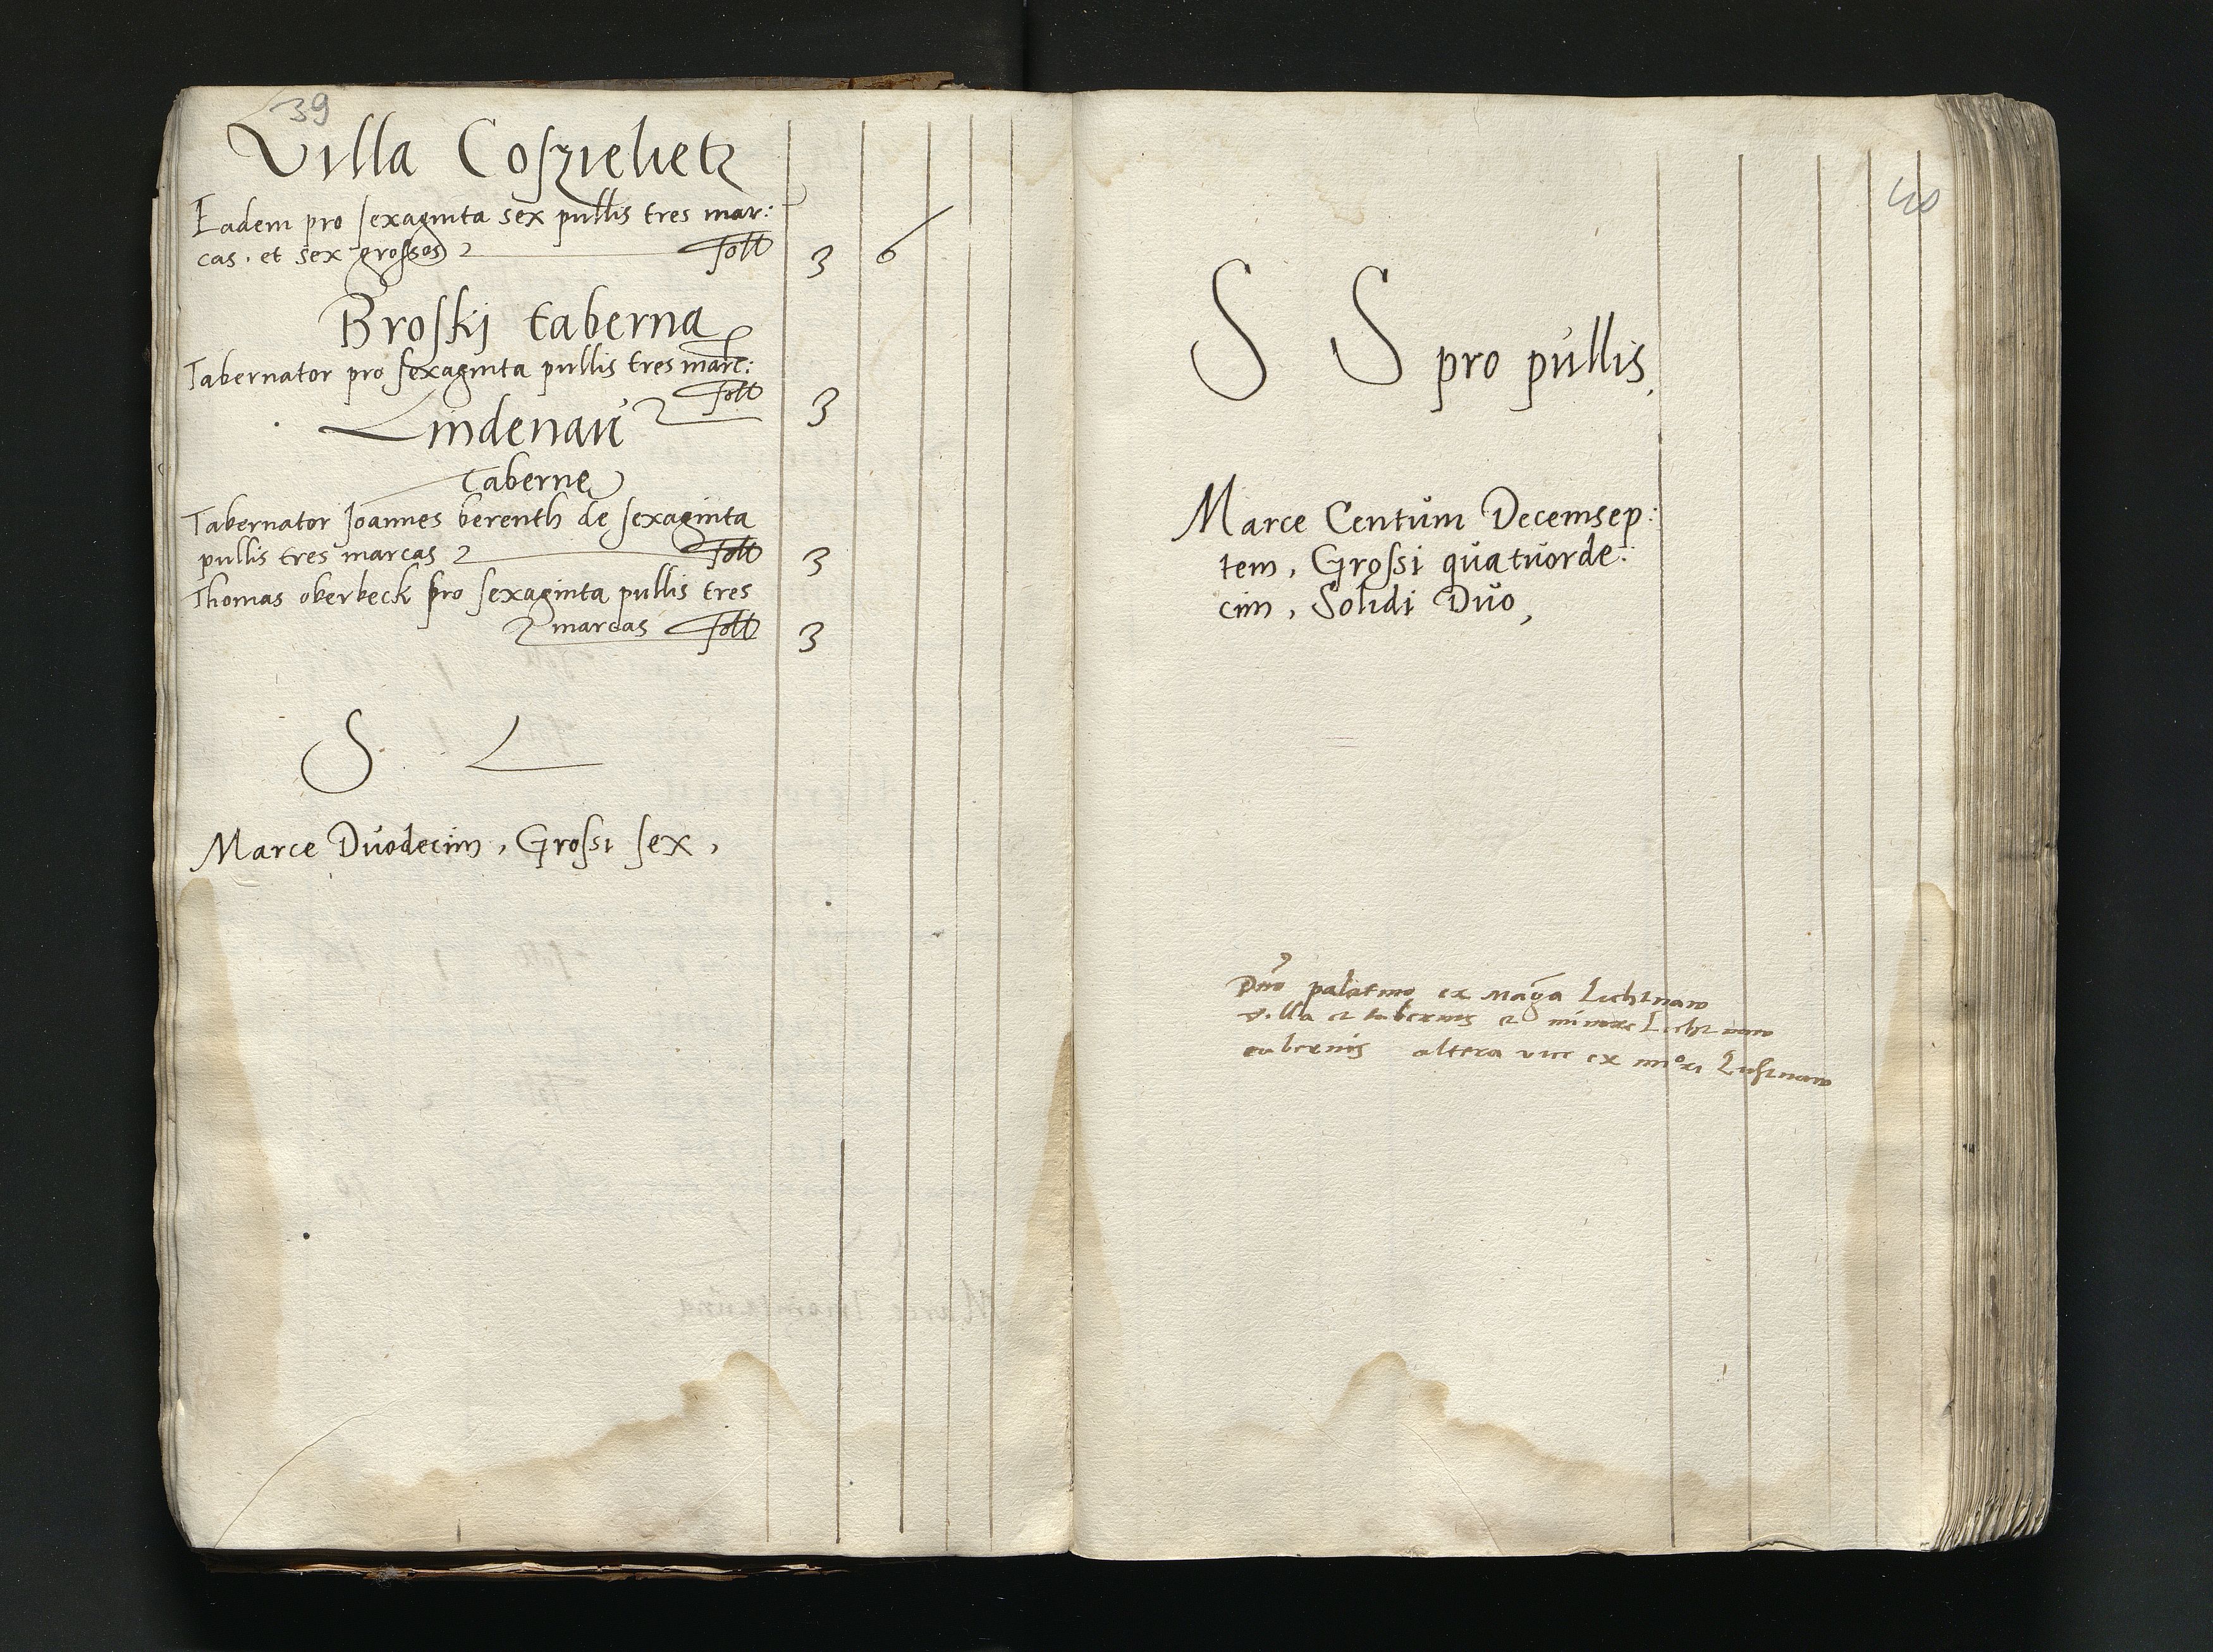 39
Villa Coszielietz
Eadem pro sexaginta sex pullis tres mar:
cas. et sex grossos solt 3 6
Broskj taberna
Tabernator pro sexaginta pullis tres marc:
solt 3
Lindenaŭ
Taberne
Tabernator Joannes berenth de sexaginta
pullis tres marcas solt 3
Thomas oberbeck pro sexaginta pullis tres
marcas solt 3
S. L
Marce Dŭodecim, Grossi sex,
40
S S pro pŭllis,
Marce Centŭm Decemsep:
tem, Grossi qŭatŭorde:
cim, Solidi Dŭo,
Dno palatino ex magna Lichtnaw
villa et tabernis et minore Lichtnaw
tabernis altera vice ex Lichtnaw